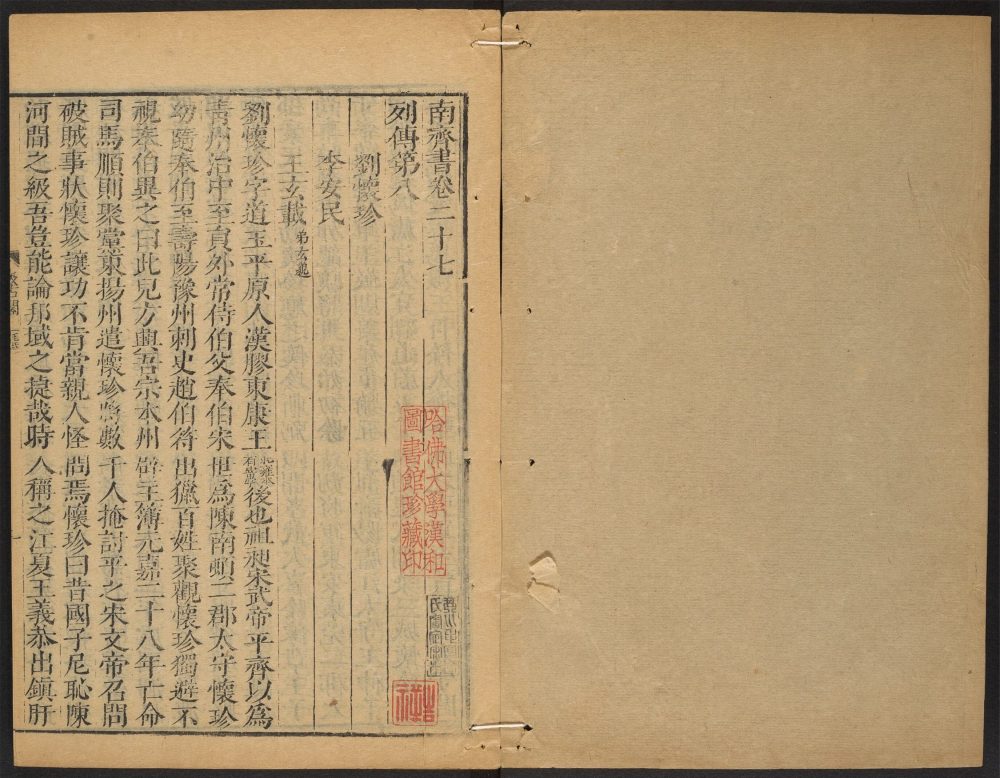 南齊書卷二十七
列傳第八
劉懷珍
李安民
王玄載弟玄邈
劉懷珍字道玉平原人漢膠東康王後也祖昶宋武帝平齊以爲
青州治中至員外常侍伯父奉伯宋世爲陳南頓二郡太守懷珍
幼隨奉伯至壽陽豫州刺史趙伯符出獵百姓聚觀懷珍獨避不
視奉伯異之曰此兒方興吾宗本州辟主簿元嘉二十八年亡命
司馬順則聚黨東揚州遣懷珍將數千人掩討平之宋文帝召問
破賊事狀懷珍讓功不肯當親人怪問焉懷珍曰昔國子尼恥陳
河間之級吾豈能論邦域之捷哉時人稱之江夏王義恭出鎮盱
哈佛大學漢和
圖書館珍藏印